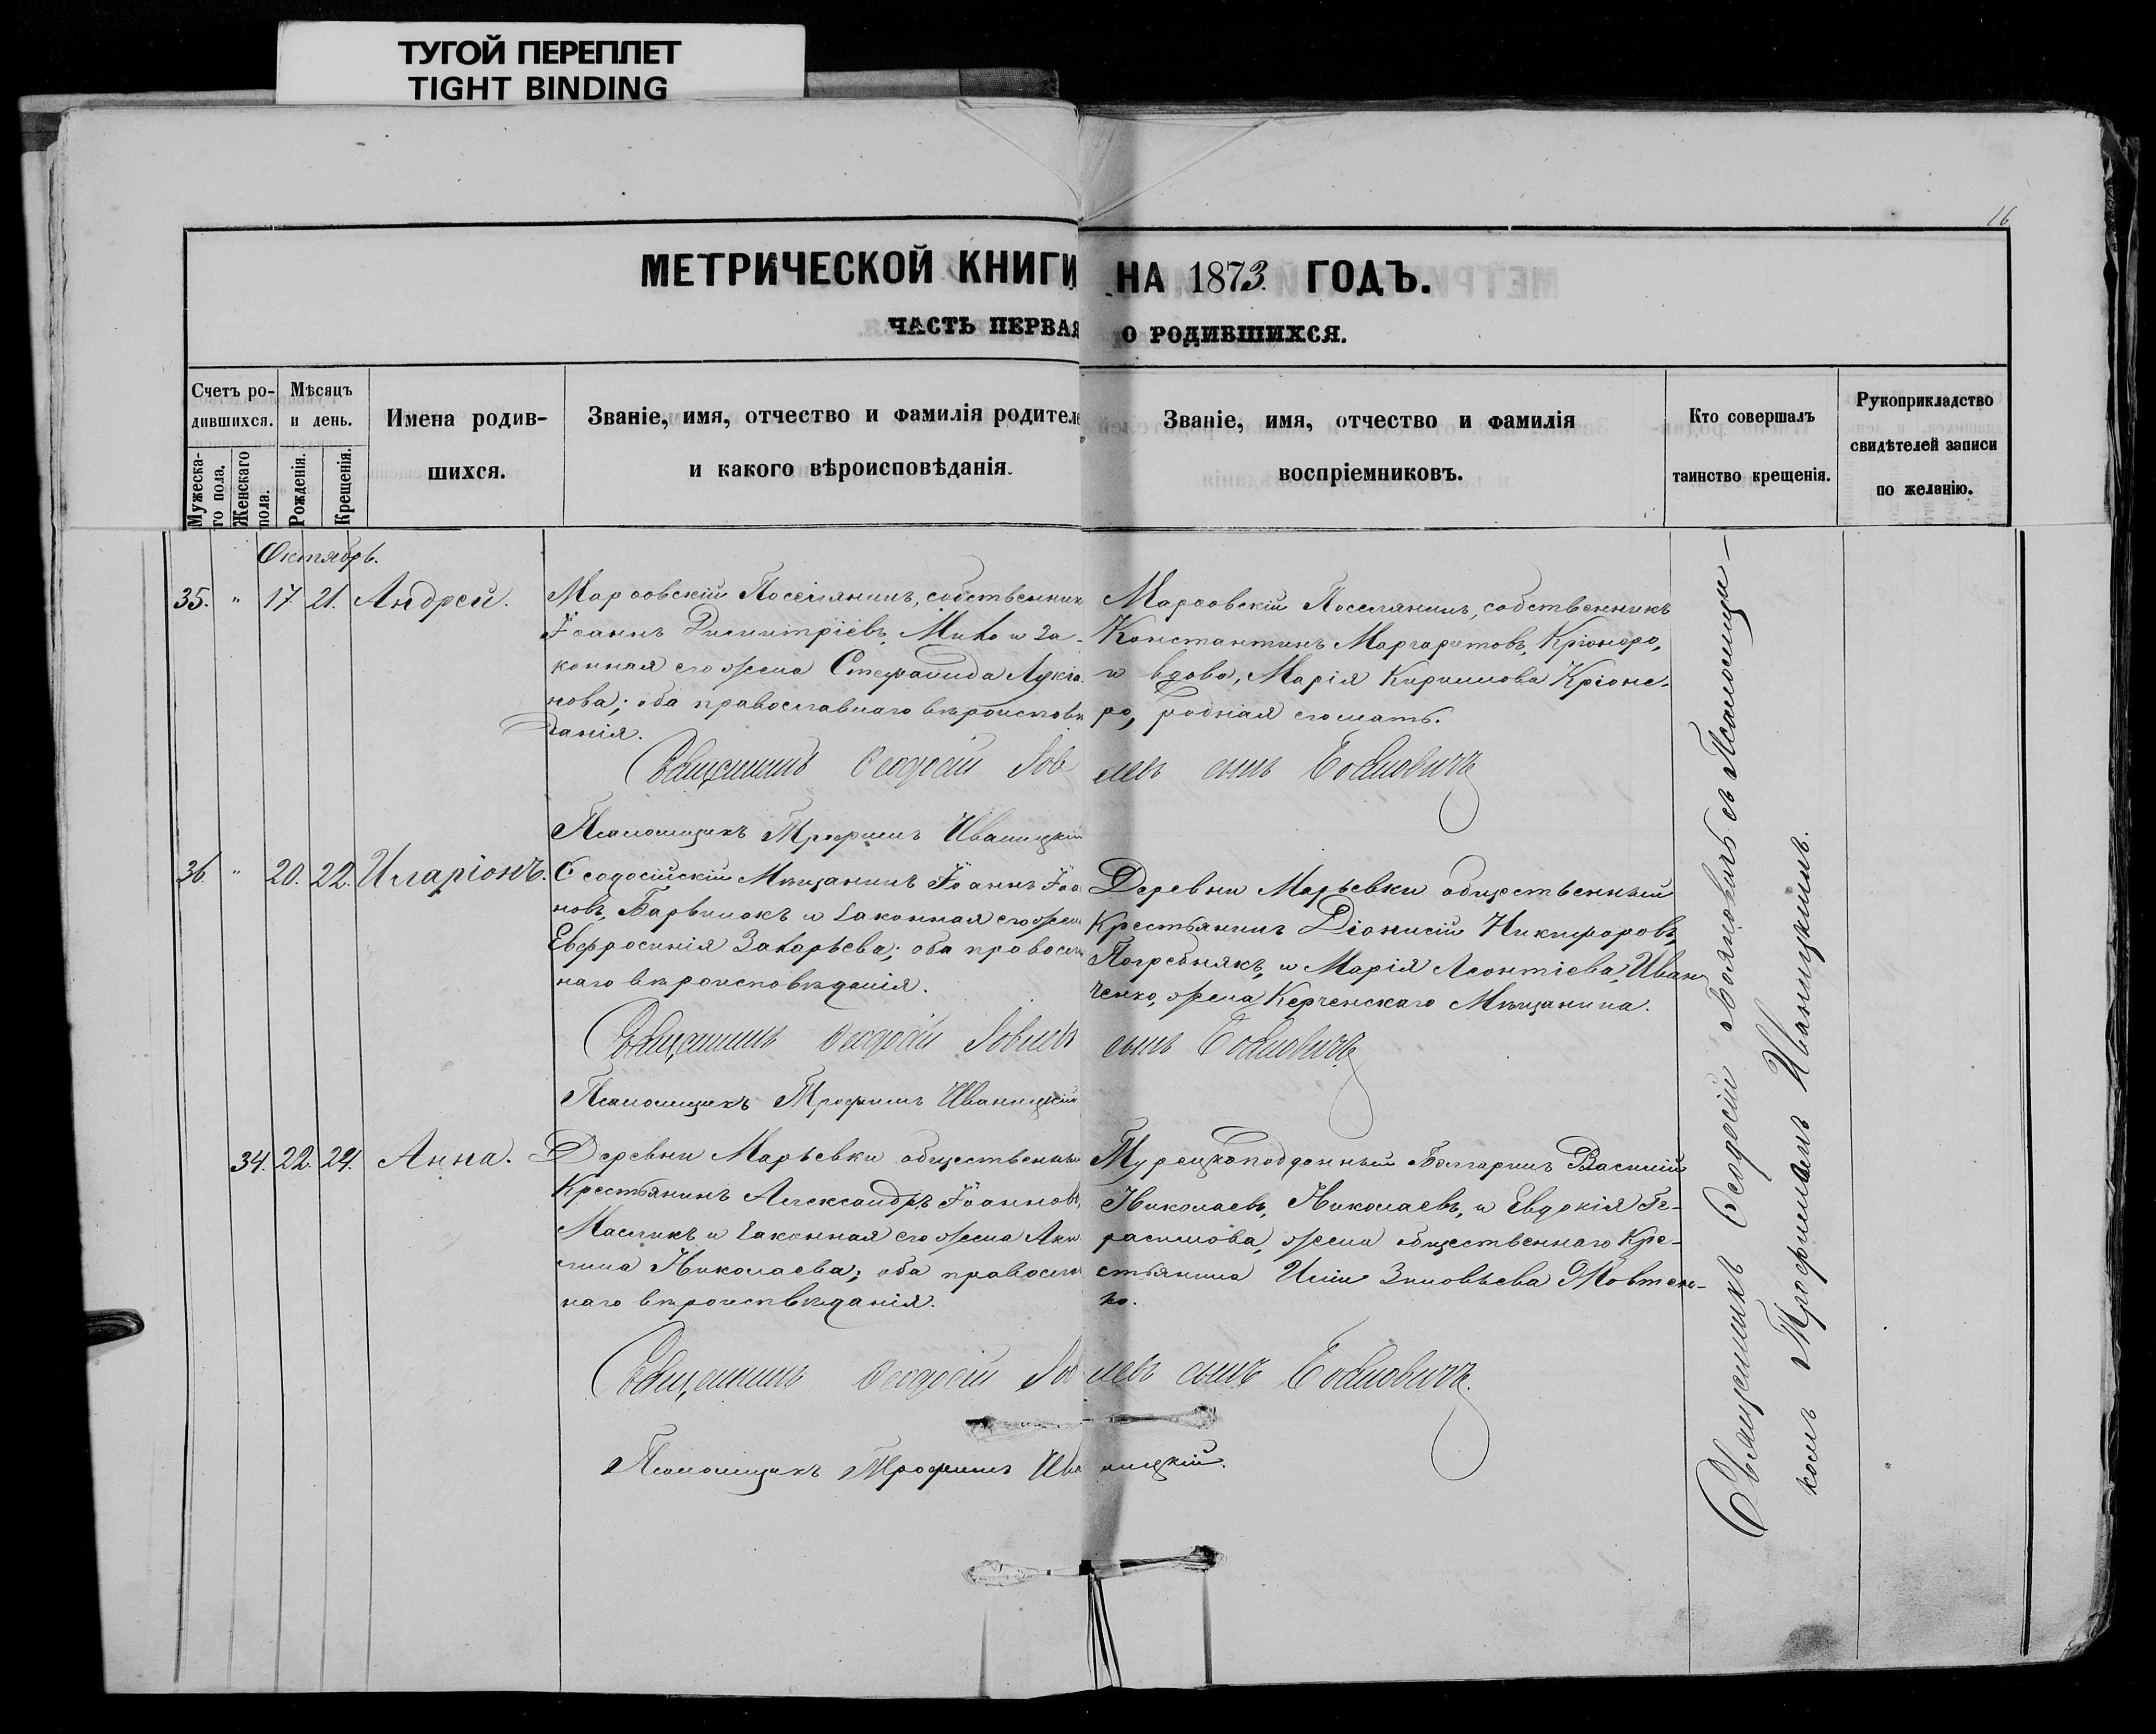 ТУГОЙ ПЕРЕПЛЕТ
TIGHT BINDING
16
МЕТРИЧЕСКОЙ КНИГИ НА 1873. ГОДЪ.
ЧАСТЬ ПЕРВАЯ О РОДИВШИХСЯ.
Счетъ ро-
дившихся.
Мужеска-
го пола.
Женскаго
пола.
Мѣсяцъ
и день.
Рожденія.
Крещенія.
Имена родив-
шихся.
Званіе, имя, отчество и фамилія родителе
и какого вѣроисповѣданія.
Званіе, имя, отчество и фамилія
воспріемниковъ.
Кто совершалъ
таинство крещенія.
Рукоприкладство
свидѣтелей записи
по желанію.
Октябрь.
35. " 17. 21. Андрей.
Марѳовскій Поселянинъ, собственник
Іоаннъ Димитріевъ, Михо и за-
конная его жена Стефанида Лукіа
нова; оба православнаго вѣроисповѣ
данія.
Марѳовскій Поселянинъ, собственникъ
Константинъ Маргаритовъ, Кріонеро,
и вдова, Марія Кириллова Кріоне-
ро, родная его мать.
Священникъ Ѳеодосій Іовлевъ сынъ Бояновичъ
Псаломщикъ Трофимъ Иваницкій
36. " 20. 22. Иларіонъ.
Ѳеодосійскій Мѣщанинъ Іоаннъ Іоа
новъ, Барвинокъ и законная его жен
Евфросинія Захарьева; оба правосла
наго вѣроисповѣданія.
Деревни Марьевки общественный
Крестьянинъ Діонисій Никифоровъ,
Погребнякъ, и Марія Леонтіева, Иван
ченко, жена Керченскаго Мѣщанина.
Священникъ Ѳеодосій Іовлевъ сынъ Бояновичъ
Псаломщикъ Трофимъ Иваницкій
34. 22. 24. Анна.
Деревни Марьевки общественны
Крестьянинъ Александръ Іоанновъ,
Масликъ и законная его жена Аки
лина Николаева; оба правосла
наго вѣроиспвѣданія.
Турецкоподданный Болгаринъ Василій
Николаевъ, Николаевъ, и Евдокія Ге-
расимова, жена общественнаго Кре-
стьянина Иліи Зиновьева Жовтен-
ко.
Священникъ Ѳеодосій Іовлевъ сынъ Бояновичъ.
Псаломщикъ Трофимъ Иваницкій.
Священникъ Ѳеодосій Бояновичъ съ Псаломщи-
комъ Трофимомъ Иваницкимъ.